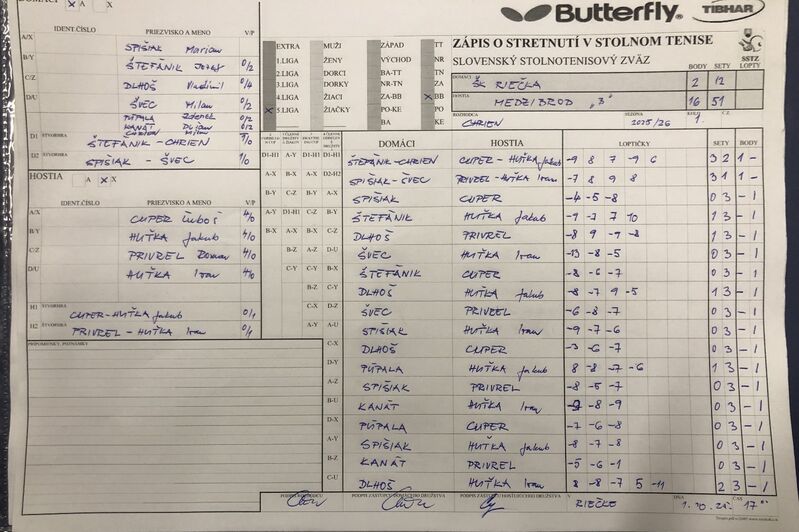 DOMÁCI A X X
Butterfly TIBHAR
IDENT.ČÍSLO PRIEZVISKO A MENO V/P
A/X SPIŠIAK Marian
B/Y ŠTEFÁNIK Jozef 0/2
C/Z DLHOŠ Vladimíl 0/4
D/U ŠVEC Milan 0/2
PÚPALA Zdenek 0/2
KANÁT Dušan 0/2
CHRIEN
D1 ŠTVORHRA ŠTEFÁNIK - CHRIEN 1/0
D2 ŠTVORHRA SPIŠIAK - ŠVEC 1/0
HOSTIA A X X
IDENT.ČÍSLO PRIEZVISKO A MENO V/P
A/X CUPER Ľuboš 4/0
B/Y HUŤKA Jakub 4/0
C/Z PRIVREL Roman 4/0
D/U HUŤKA Ivan 4/0
H1 ŠTVORHRA CUPER-HUŤKA Jakub 0/1
H2 ŠTVORHRA PRIVREL-HUŤKA Ivan 0/1
PRIPOMIENKY, POZNÁMKY
EXTRA MUŽI ZÁPAD TT
1.LIGA ŽENY VÝCHOD NR
2.LIGA DORCI BA-TT TN
3.LIGA DORKY NR-TN ZA
4.LIGA ŽIACI ZA-BB X BB
X 5.LIGA ŽIAČKY PO-KE PO
BA KE
ZÁPIS O STRETNUTÍ V STOLNOM TENISE
SLOVENSKÝ STOLNOTENISOVÝ ZVÄZ
SSTZ
BODY SETY LOPTY
DOMÁCI ŠK RIEČKA 2 12
HOSTIA MEDZIBROD "B" 16 51
ROZHODCA CHRIEN SEZÓNA 2025/26 KOLO 1.
DOMÁCI HOSTIA LOPTIČKY SETY BODY
D1-H1 A-Y D1-H1 D1-H1 ŠTEFÁNIK-CHRIEN CUPER-HUŤKA Jakub -9 8 7 -9 6 3 2 1 -
A-X B-X A-X D2-H2 SPIŠIAK-ŠVEC PRIVREL-HUŤKA Ivan -7 8 9 8 3 1 1 -
B-Y C-Z B-Y A-X SPIŠIAK CUPER -4 -5 -8 0 3 - 1
A-Y D1-H1 C-Z B-Y ŠTEFÁNIK HUŤKA Jakub 1 3 - 1
B-X A-X B-X C-Z DLHOŠ PRIVREL -8 9 -7 -8 1 3 - 1
B-Z A-Z D-U ŠVEC HUŤKA Ivan -13 -8 -5 0 3 - 1
C-Y B-X ŠTEFÁNIK CUPER -8 -6 -7 0 3 - 1
B-Z C-Y DLHOŠ HUŤKA Jakub -8 -7 9 -5 1 3 - 1
C-X D-Z ŠVEC PRIVREL -6 -8 -7 0 3 - 1
A-Y A-U SPIŠIAK HUŤKA Ivan -9 -7 -6 0 3 - 1
C-X DLHOŠ CUPER -3 -6 -7 0 3 - 1
D-Y PÚPALA HUŤKA Jakub 8 -8 -7 -6 1 3 - 1
A-Z SPIŠIAK PRIVREL -8 -5 -7 0 3 - 1
B-U KANÁT HUŤKA Ivan -8 -9 0 3 - 1
D-X PÚPALA CUPER -7 -6 -8 0 3 - 1
A-Y SPIŠIAK HUŤKA Jakub -8 -7 -8 0 3 - 1
B-Z KANÁT PRIVREL -5 -6 -1 0 3 - 1
C-U DLHOŠ HUŤKA Ivan 8 -8 -7 5 -11 2 3 - 1
PODPIS ROZHODCU PODPIS ZÁSTUPCU DOMÁCEHO DRUŽSTVA PODPIS ZÁSTUPCU HOSŤUJÚCEHO DRUŽSTVA V RIEČKE DŇA 1.10.25 ČAS 17